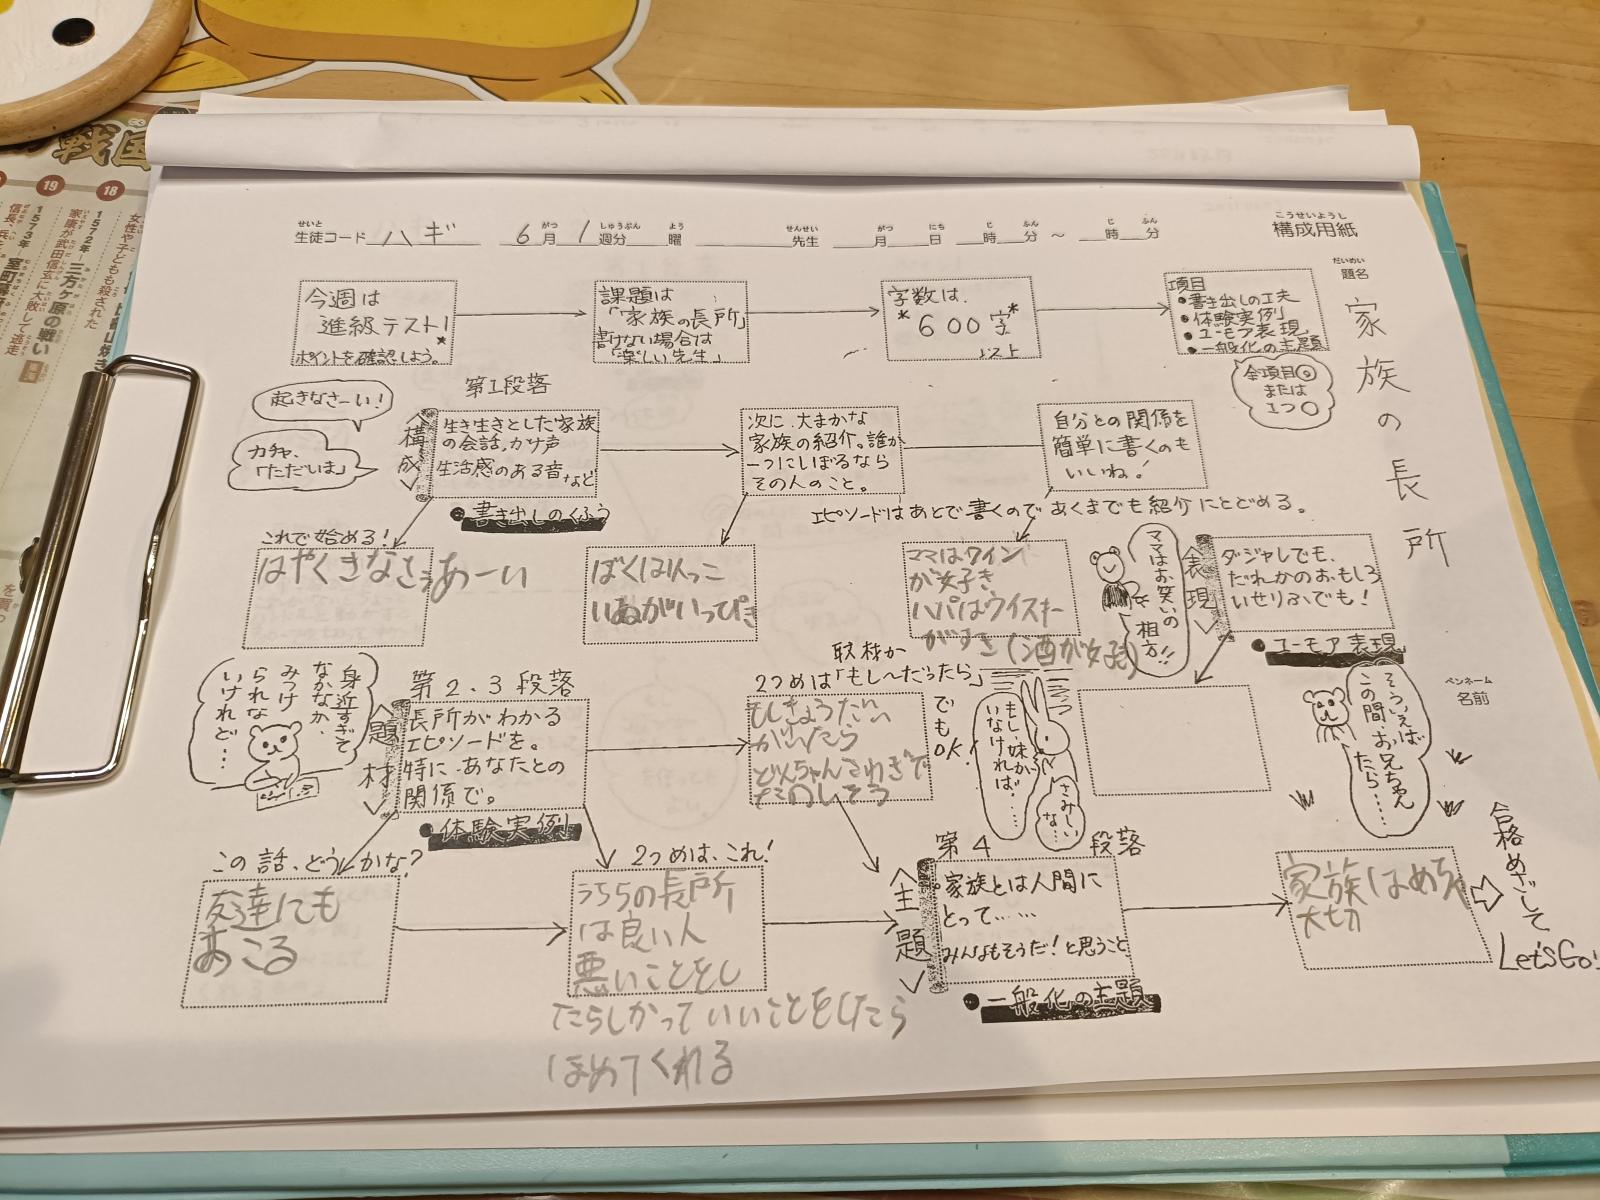 構成用紙
生徒コード ハギ 6月 1週分 曜 先生 月 日 時 分 ～ 時 分
題名
家族の長所
今週は
進級テスト!
ポイントを確認しよう。
課題は
「家族の長所」
書けない場合は
「楽しい先生」
字数は、
*600字*
以上
項目
●書き出しの工夫
●体験実例
●ユーモア表現
●一般化の主題
全項目◎
または
1つ○
第1段落
起きなさーい!
カチャ、
「ただいま」
<構成>
生き生きとした家族
の会話、かけ声
生活感のある音など
●書き出しのくふう
次に、大まかな
家族の紹介。誰か
一つにしぼるなら
その人のこと。
自分との関係を
簡単に書くのも
いいね!
エピソードはあとで書くので あくまでも紹介にとどめる。
これで始める!
はやくきなさぁあーい
ぼくはひとりっこ
いぬがいっぴき
ママはワイン
が好き
パパはウイスキー
がすき(酒が好き)
ママはお笑いの
相方!!
<表現>
ダジャレでも、
だれかのおもしろ
いせりふでも!
●ユーモア表現
身近すぎて
なかなか、
みつけ
られな
いけれど…
第2.3段落
<題材>
長所がわかる
エピソードを。
特に、あなたとの
関係で。
●体験実例
取材か
2つめは「もし～だったら」
でもOK!
もしきょうだい
がいたら
どんちゃんさわぎで
たのしそう
もし、妹が
いなければ……
さみしい
な…
そういえば
この間、お兄ちゃん
たら……
ペンネーム
名前
この話、どうかな?
友達にも
おこる
2つめは、これ!
うちらの長所
は良い人
悪いことをし
たらしかっていいことをしたら
ほめてくれる
第4段落
<主題>
家族とは人間に
とって……
みんなもそうだ!と思うこと
●一般化の主題
家族はめちゃ
大切
合格めざして
Let'sGo!
戦国
19
1573年
18
1572年 三方ヶ原の戦い
家康が武田信玄に大敗して逃走
女性や子どもも殺された